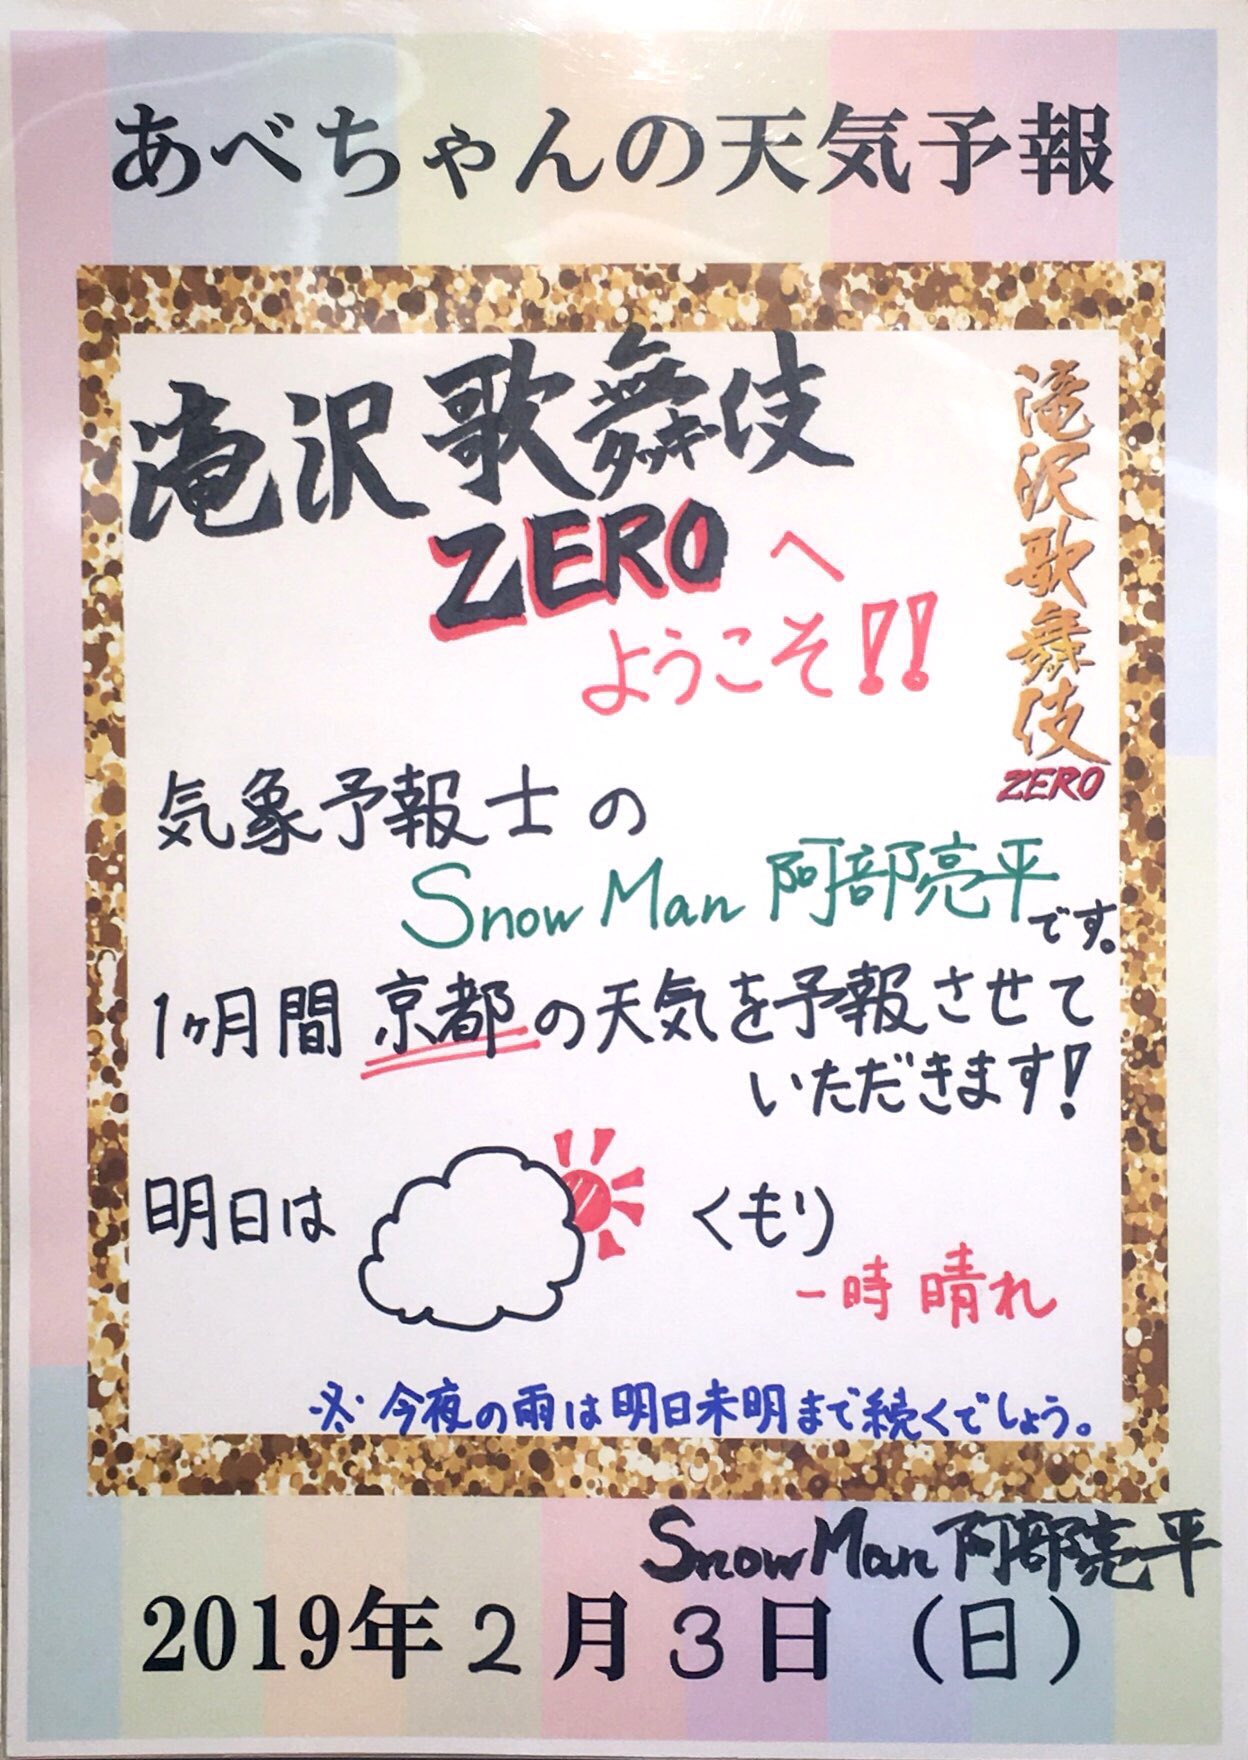 あべちゃんの天気予報
滝沢歌舞伎
タッキー
ZEROへ
ようこそ!!
滝沢歌舞伎
ZERO
気象予報士の
Snow Man 阿部亮平です。
1ヶ月間京都の天気を予報させて
いただきます!
明日は くもり
一時 晴れ
※今夜の雨は明日未明まで続くでしょう。
Snow Man 阿部亮平
2019年2月3日(日)